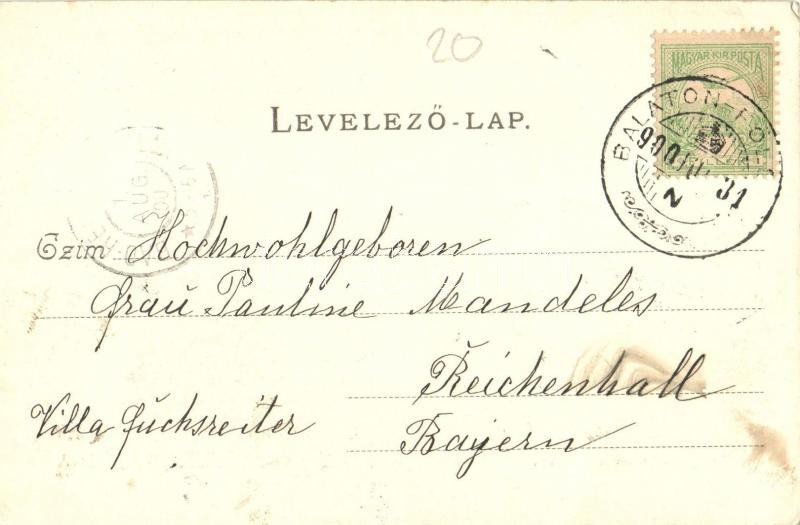 20
MAGYAR·KIR·POSTA
LEVELEZŐ-LAP.
BALATON-
900
31
N
AUG
Czim Hochwohlgeboren
Frau Pauline Mandeles
Reichenhall
Villa Fuchsreiter
Bayern